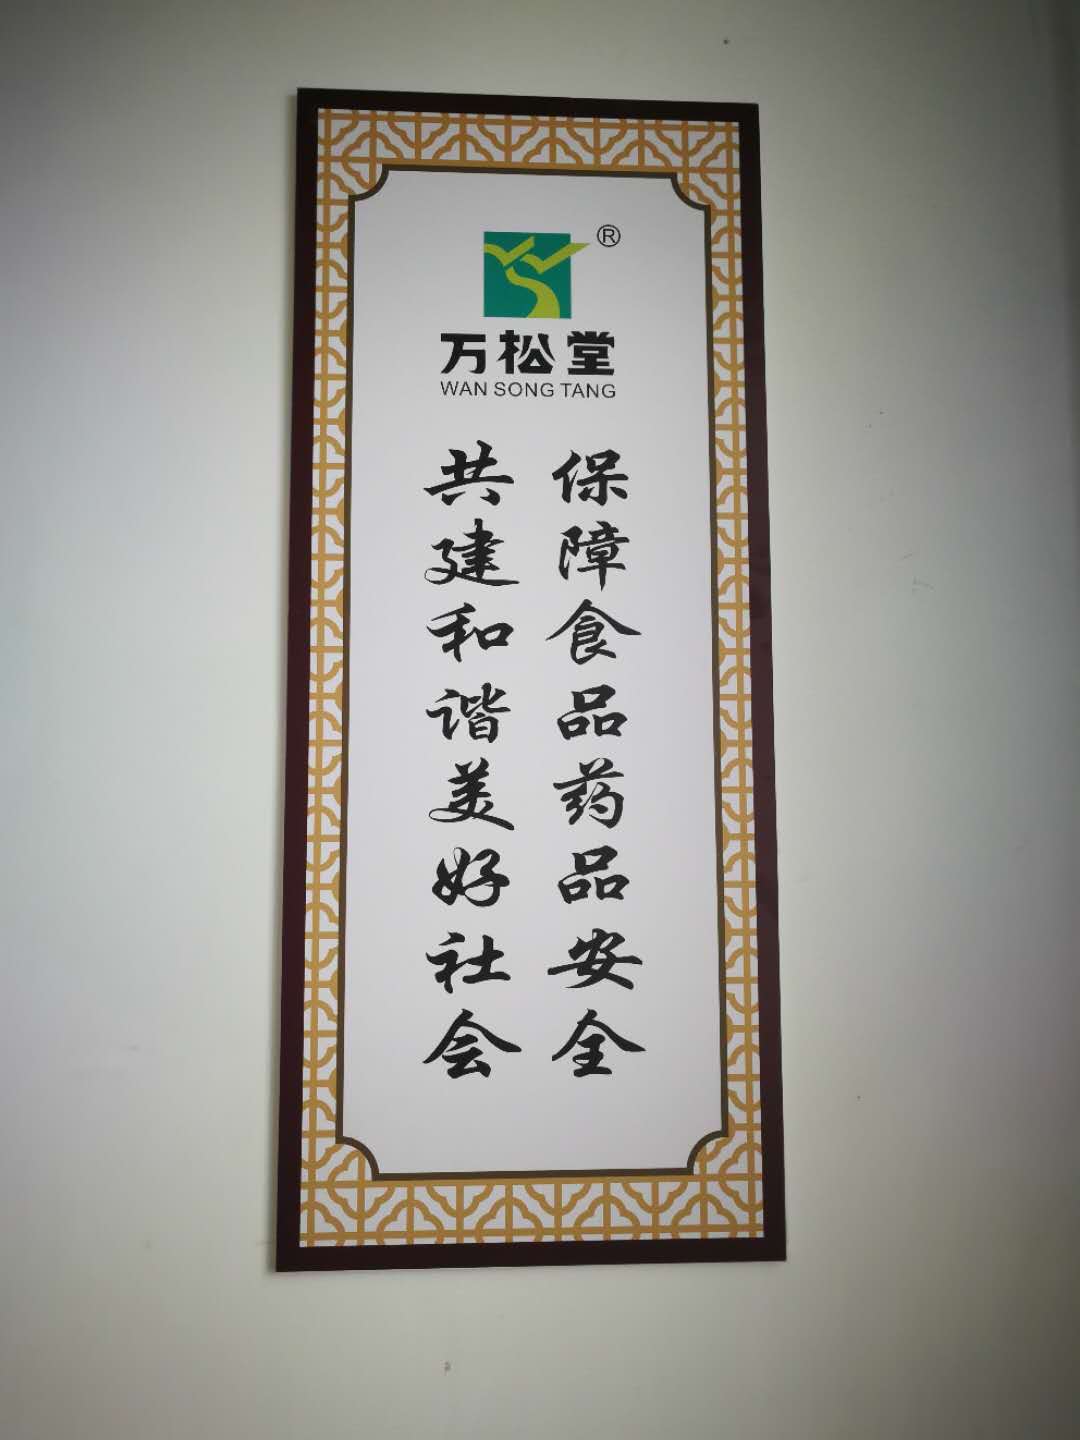 ®
万松堂
WAN SONG TANG
保障食品药品安全
共建和谐美好社会